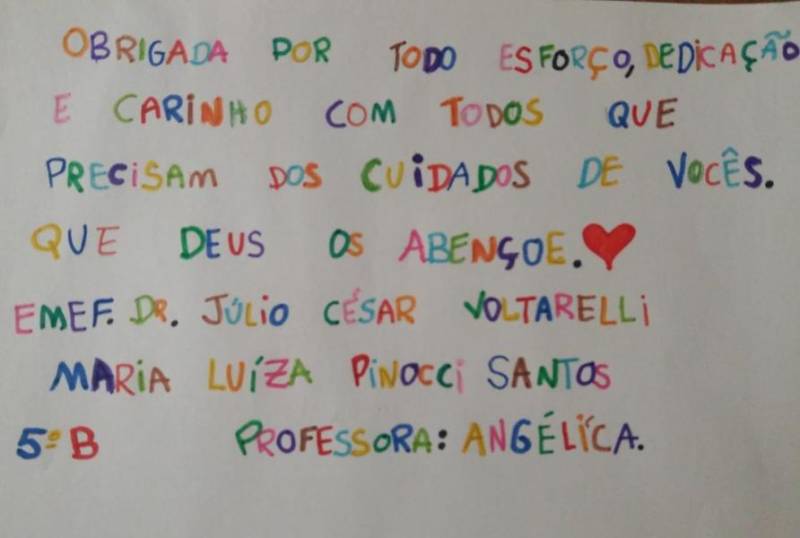 OBRIGADA POR TODO ESFORÇO, DEDICAÇÃO
E CARINHO COM TODOS QUE
PRECISAM DOS CUIDADOS DE VOCÊS.
QUE DEUS OS ABENÇOE.
EMEF. DR. JÚLIO CÉSAR VOLTARELLI
MARIA LUÍZA PINOCCI SANTOS
5º B PROFESSORA: ANGÉLÍCA.